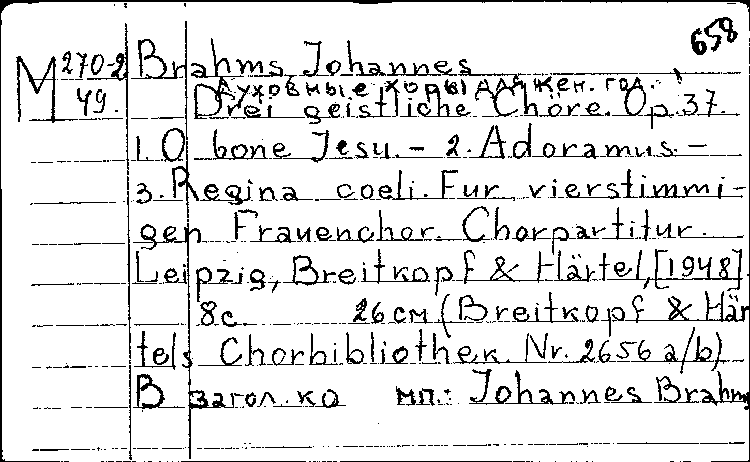 658
M 270-2 Brahms, Johannes
49. Духовные хоры для жен. гол.
Drei geistliche Chöre. Op. 37.
1. O bone Jesu. - 2. Adoramus. -
3. Regina coeli. Fur vierstimmi-
gen Frauenchor. Chorpartitur.
Leipzig, Breitkopf & Härtel, [1948].
8с. 26 см (Breitkopf & Här
tels Chorbibliothek. Nr. 2656 a/b)
В загол. ко мп.: Johannes Brahms